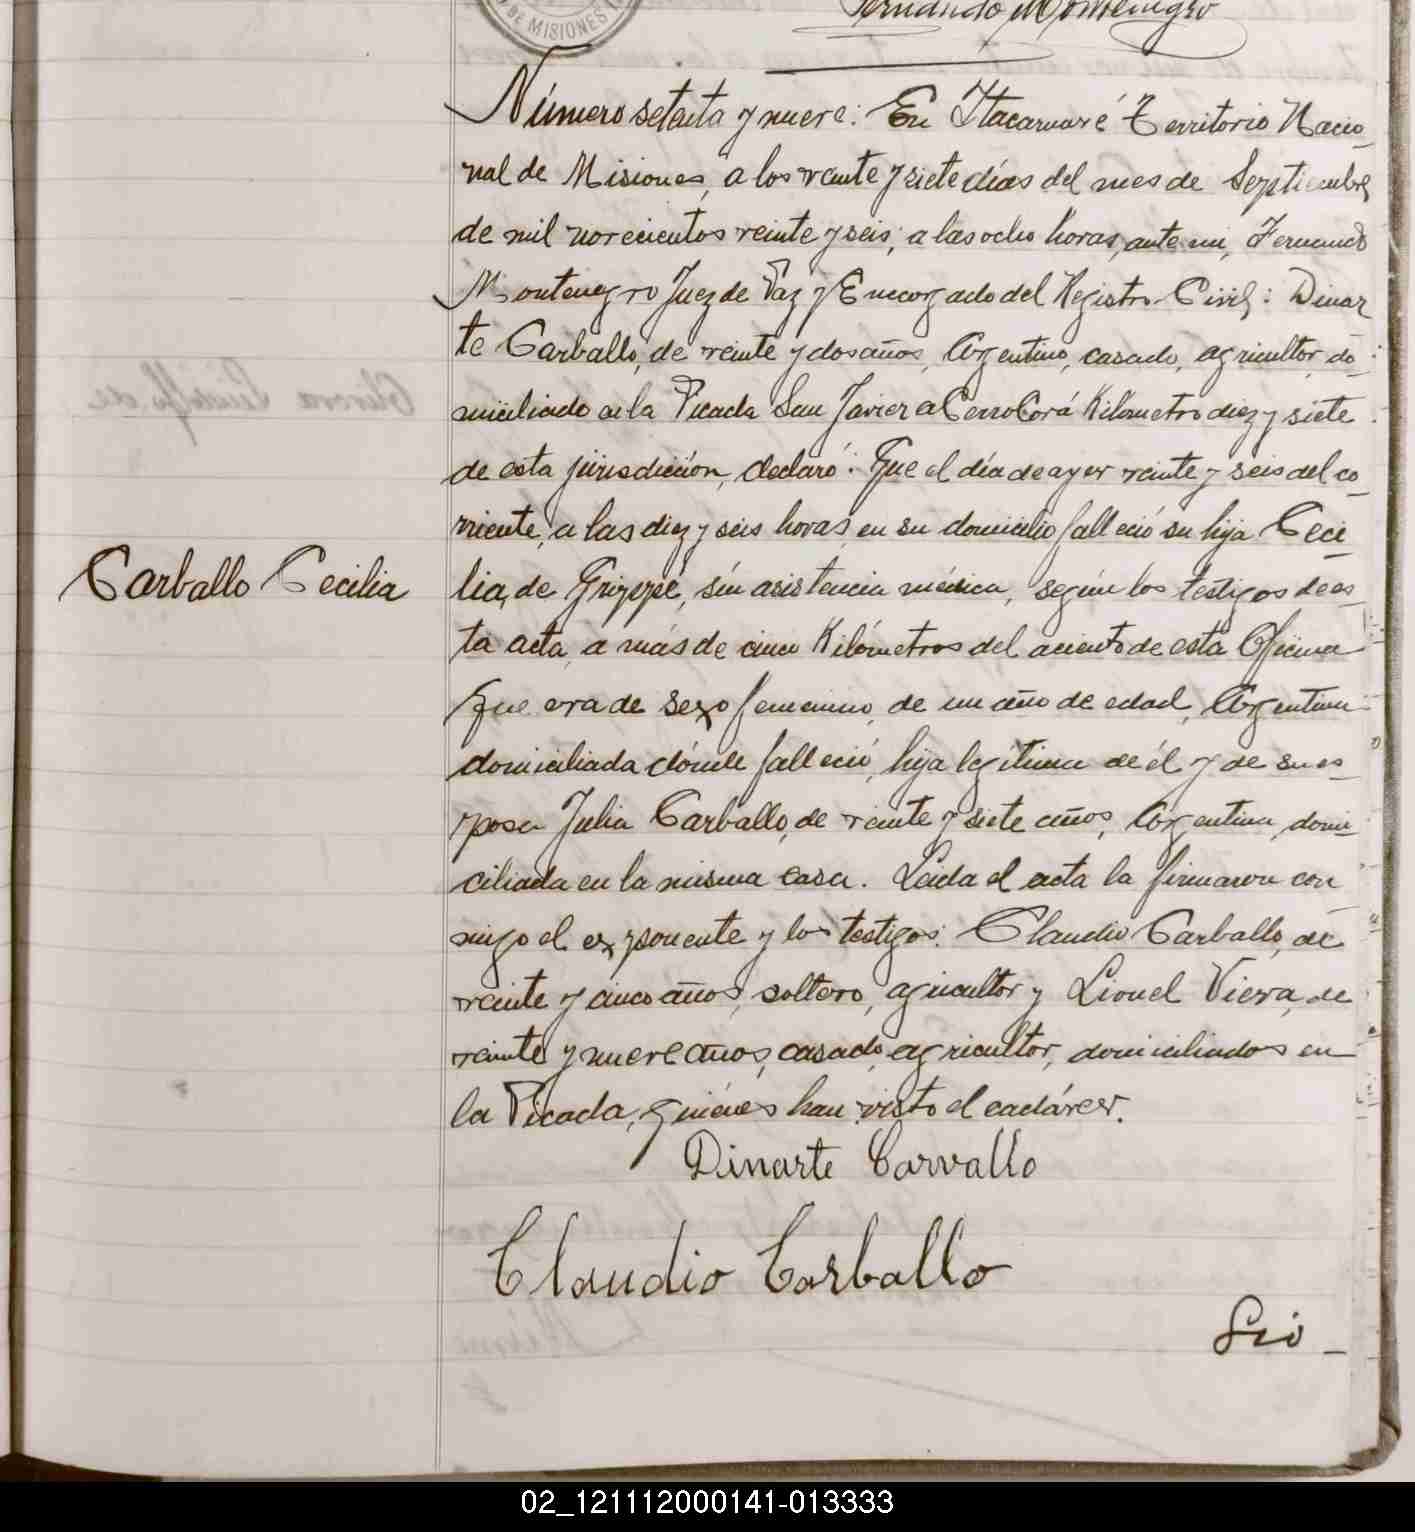 DE MISIONES
Fernando Montenegro
Número setenta y nueve: En Itacaruaré Territorio Nacio_
nal de Misiones, a los veinte y siete días del mes de Septiembre
de mil novecientos veinte y seis, a las ocho horas, ante mi, Fernando
Montenegro Juez de Paz y Encargado del Registro Civil: Dinar
te Carballo, de veinte y dos años, Argentino, casado, agricultor, do_
miciliado en la Picada San Javier a Cerro Corá Kilómetro diez y siete
de esta jurisdicción, declaró: Que el día de ayer veinte y seis del co_
rriente, a las diez y seis horas, en su domicilio falleció su hija Ceci_
Carballo Cecilia
lia, de Grippe, sin asistencia médica, según los testigos de es_
ta acta, a más de cinco Kilómetros del aciento de esta Oficina
que era de sexo femenino, de un año de edad, Argentina
domiciliada dónde falleció, hija legítima de él y de su es_
posa Julia Carballo, de veinte y siete años, Argentina, domi_
ciliada en la misma casa. Leida el acta la firmaron con
migo el exponente y los testigos: Claudio Carballo, de
veinte y cinco años, soltero, agricultor y Lionel Viera, de
veinte y nueve años, casado, agricultor, domiciliados en
la Picada, quiénes han visto el cadáver.
Dinarte Carvallo
Claudio Carballo
Lio_
02_121112000141-013333